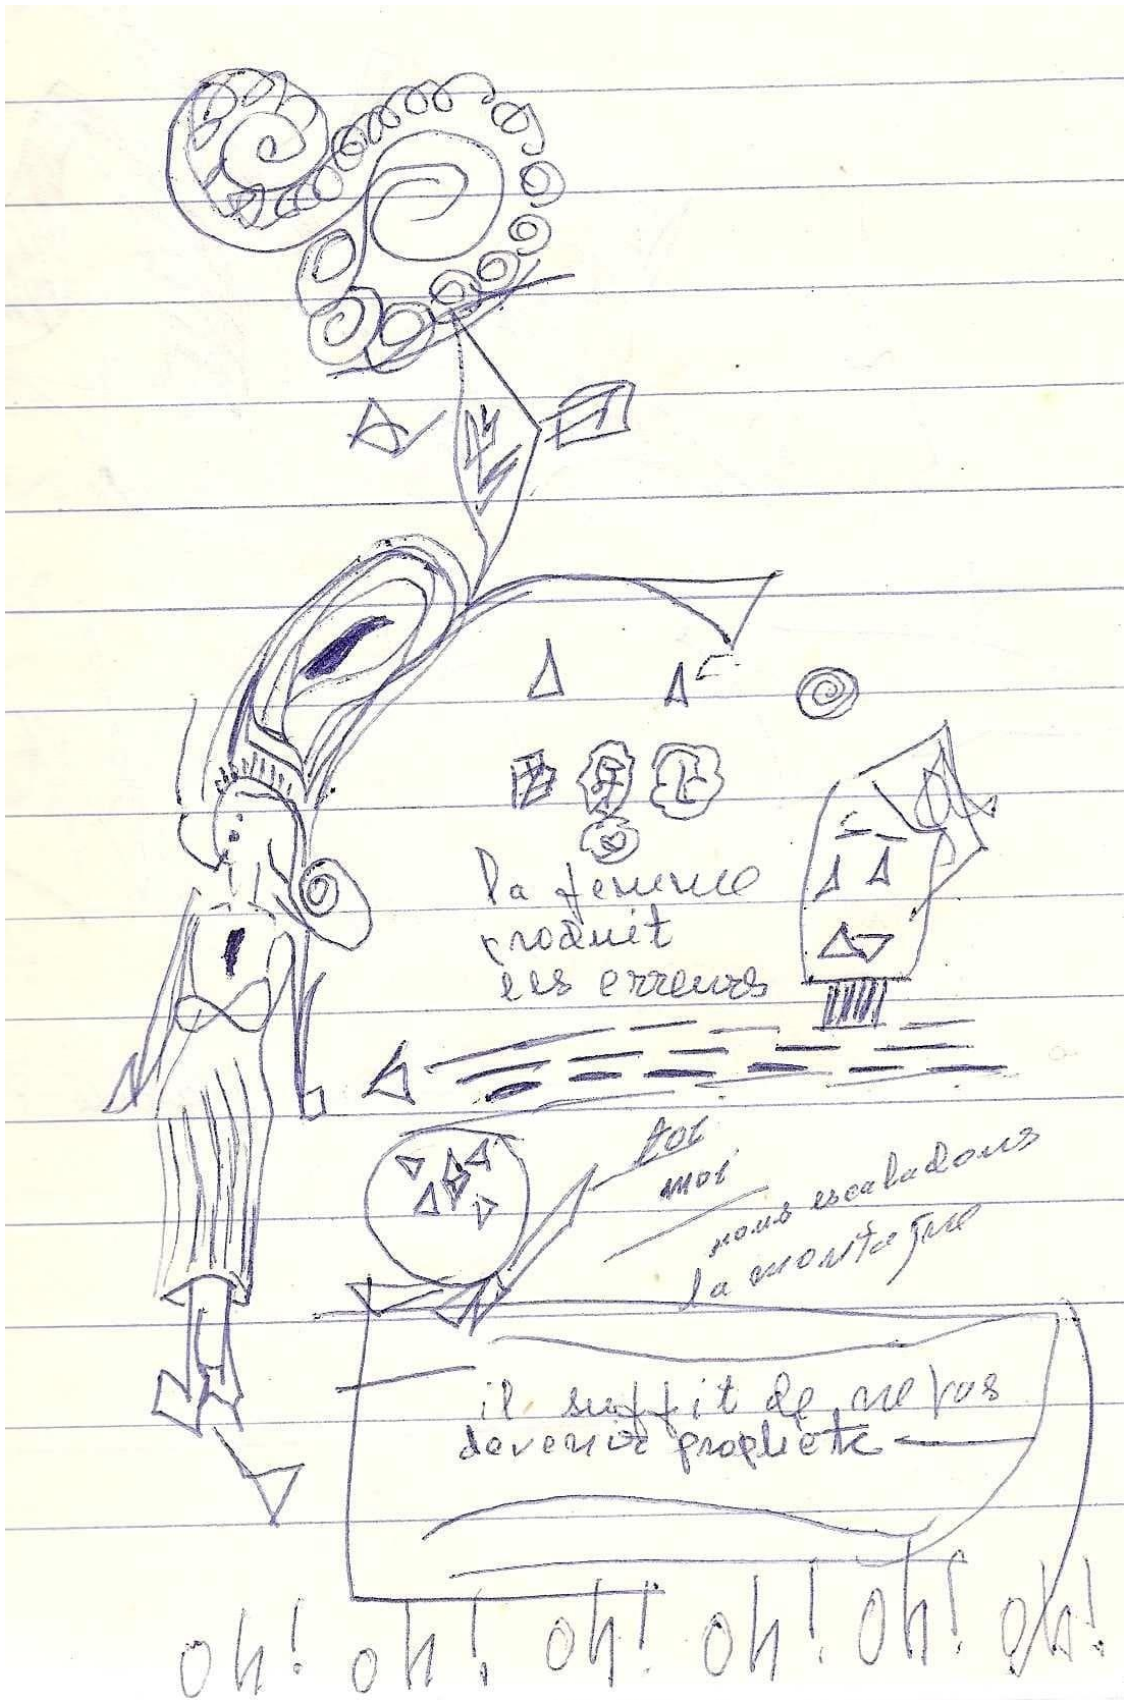 la femme
produit
les erreurs
toi
moi
nous escaladons
la montagne
il suffit de ne pas
devenir prophete
oh! oh! oh! oh! oh! oh!